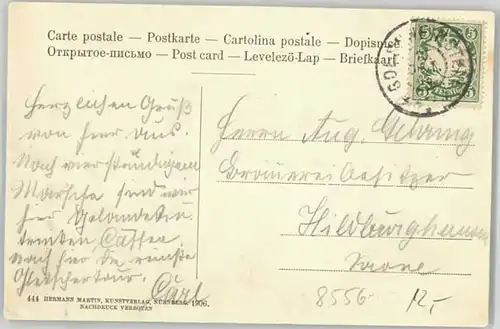 Carte postale – Postkarte – Cartolina postale – Dopisnice
Открытое-письмо – Post card – Levelezö-Lap – Briefkaart
5
5
PFENNIG
Herzlichen Gruß
von hier aus.
Nach vierstündigem
Marsche sind wir
hier
Caffee,
nach hier die
Gletschertour.
Carl
Herrn Aug.
Brauerei Besitzer
Hildburghausen
444 HERMANN MARTIN, KUNSTVERLAG, NÜRNBERG, 1906.
NACHDRUCK VERBOTEN
8556
12,-